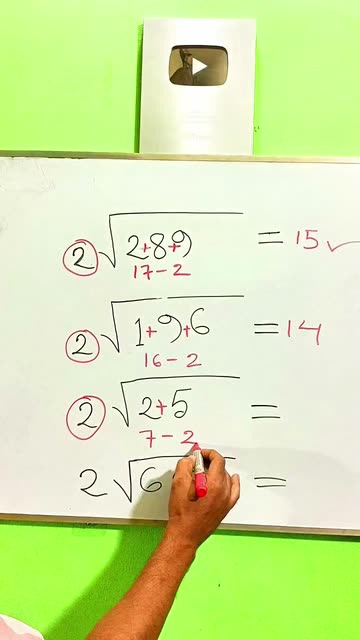 2√2+8+9 = 15 ✓
17-2
2√1+9+6 = 14
16-2
2√2+5 =
7-2
2√6 =